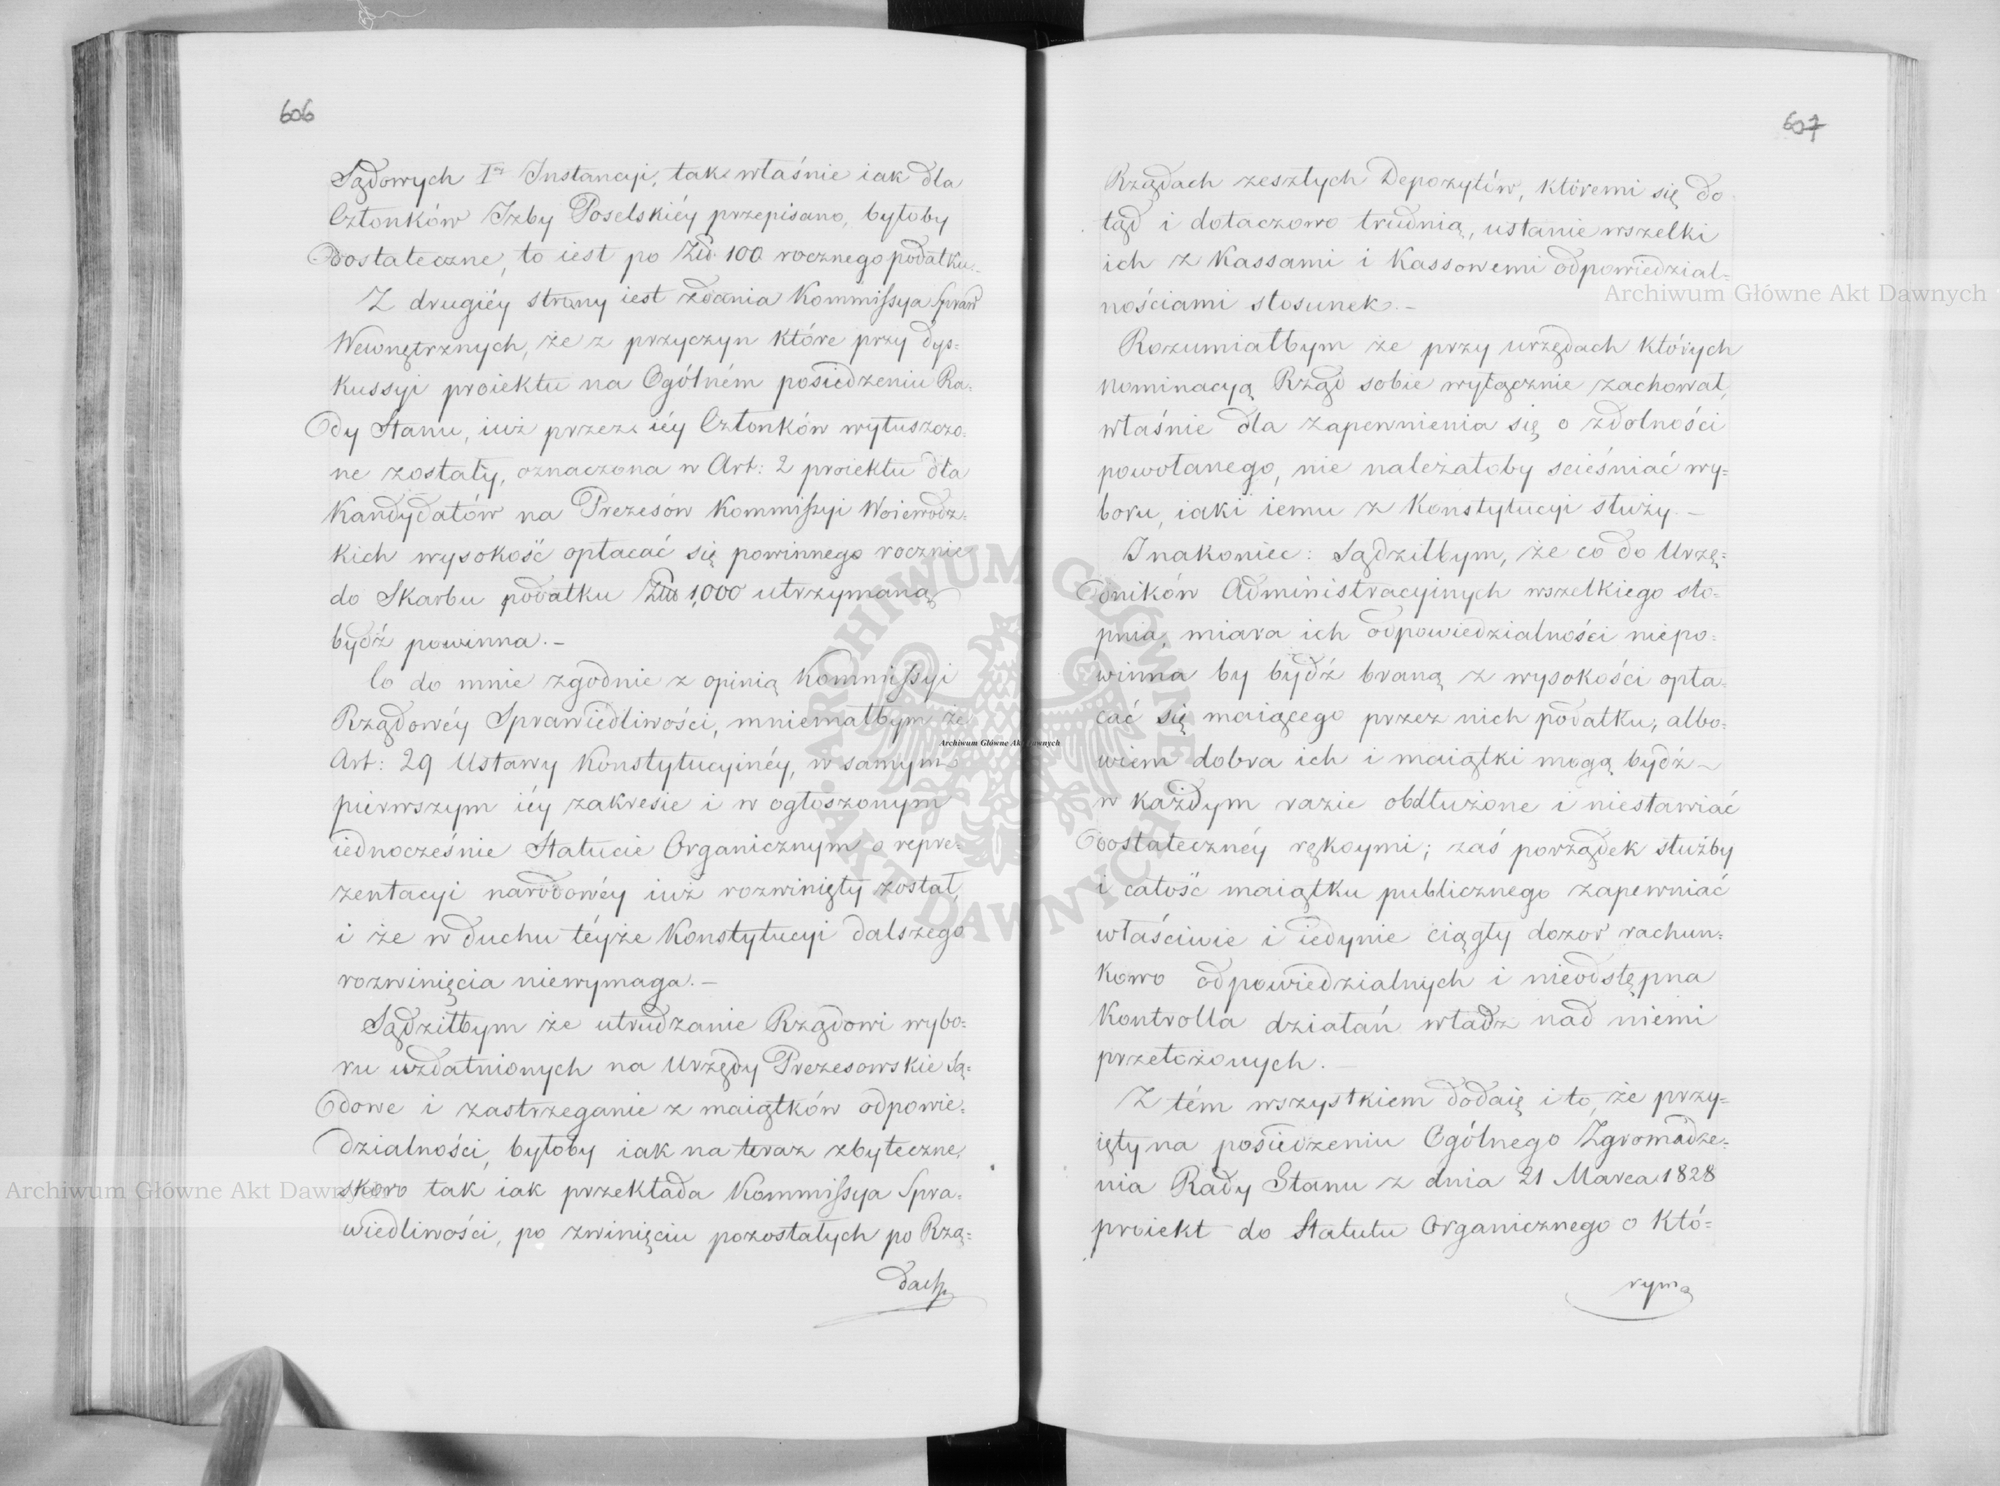 606
Sądowych Iéj Instancyi, tak właśnie iak dla
Członków Izby Poselskiéy przepisano, byłoby
dostateczne, to iest po Złł 100 rocznego podatku.-
Z drugiéy strony iest zdania Kommissya Spraw
Wewnętrznych, że z przyczyn które przy dys=
kussyi proiektu na Ogólném posiedzeniu Ra=
dy Stanu, iuż przez iéy Członków wyłuszczo=
ne zostały, oznaczona w Art: 2 proiektu dla
Kandydatów na Prezesów Kommissyi Woiewodz=
kich wysokość opłacać się powinnego rocznie
do Skarbu podatku Złł 1,000 utrzymaną
bydź powinna.-
Co do mnie zgodnie z opinią Kommissyi
Rządowéy Sprawiedliwości, mniemałbym że
Art: 29 Ustawy Konstytucyinéy, w samym
pierwszym iéy zakresie i w ogłoszonym
iednocześnie Statucie Organicznym o repre=
zentacyi narodowéy iuż rozwinięty został,
i że w duchu téyże Konstytucyi dalszego
rozwinięcia niewymaga.-
Sądziłbym że utrudzanie Rządowi wybo=
ru uzdatnionych na Urzędy Prezesowskie Są=
dowe i zastrzeganie z maiątków odpowie=
dzialności, byłoby iak na teraz zbyteczne,
skoro tak iak przekłada Kommissya Spra=
wiedliwości, po zwinięciu pozostałych po Rzą=
dach
607
Rządach zeszłych Depozytów, któremi się do
tąd i dotaczowo trudnią, ustanie wszelki
ich z Kassami i Kassowemi odpowiedzial=
nościami stosunek.-
Rozumiałbym że przy urzędach których
nominacyą Rząd sobie wyłącznie zachował,
właśnie dla zapewnienia się o zdolności
powołanego, nie należałoby scieśniać wy=
boru, iaki iemu z Konstytucyi służy.-
Inakoniec: Sądziłbym, że co do Urzę=
dników Administracyinych wszelkiego sto=
pnia, miara ich odpowiedzialności niepo=
winna by bydź braną z wysokości opła=
cać się maiącego przez nich podatku, albo=
wiem dobra ich i maiątki mogą bydź
w każdym razie obdłużone i niestawiać
dostatecznéy rękoymi; zaś porządek służby
i całość maiątku publicznego zapewniać
właściwie i iedynie ciągły dozór rachun=
kowo odpowiedzialnych i nieodstępna
Kontrolla działań władz nad niemi
przełożonych.-
Z tém wszystkiem dodaię i to, że przy=
ięty na posiedzeniu Ogólnego Zgromadze=
nia Rady Stanu z dnia 21 Marca 1828
proiekt do Statutu Organicznego o któ=
rym
Archiwum Główne Akt Dawnych
Archiwum Główne Akt Dawnych
Archiwum Główne Akt Dawnych
ARCHIWUM GŁÓWNE
AKT DAWNYCH